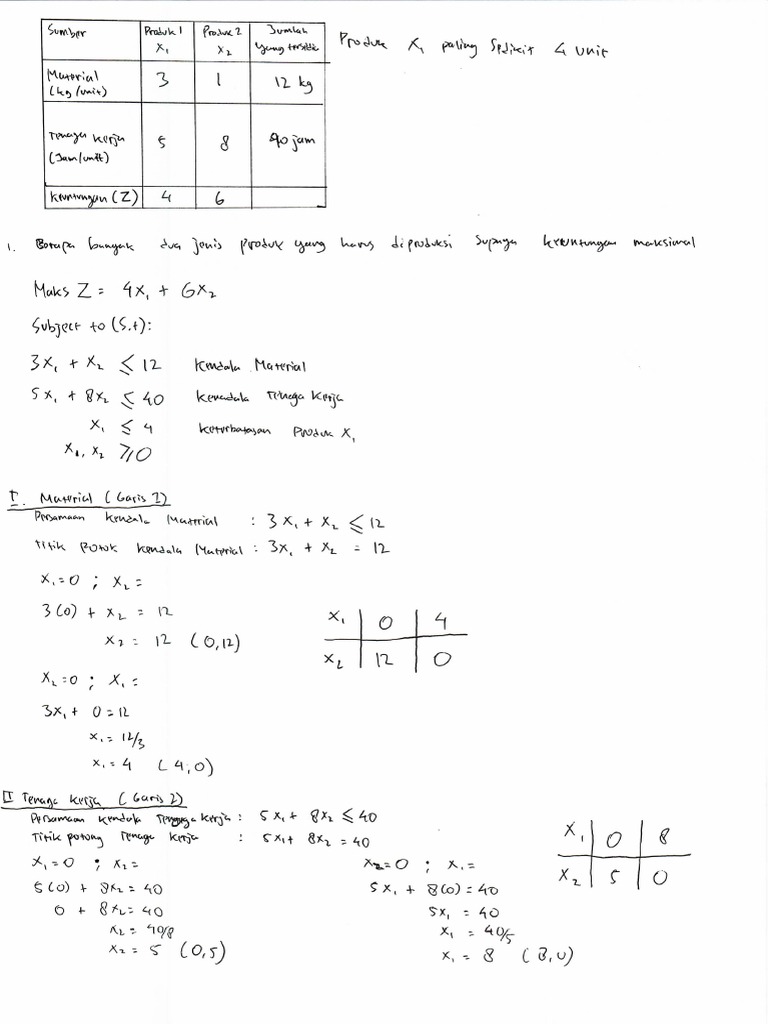 Sumber Produk 1 X₁ Produk 2 X₂ Jumlah yang tersedia
Material (kg/unit) 3 1 12 kg
Tenaga Kerja (Jam/unit) 5 8 40 jam
Keuntungan (Z) 4 6
Produk X₁ paling Sedikit 4 unit
1. Berapa banyak dua jenis produk yang harus diproduksi Supaya keuntungan maksimal
Maks Z = 4X₁ + 6X₂
Subject to (S.t):
3X₁ + X₂ ≤ 12 Kendala Material
5X₁ + 8X₂ ≤ 40 Kendala Tenaga Kerja
X₁ ≤ 4 Keterbatasan Produk X₁
X₁, X₂ ≥ 0
I. Material (Garis I)
Persamaan Kendala Material : 3X₁ + X₂ ≤ 12
Titik Potok Kendala Material : 3X₁ + X₂ = 12
X₁ = 0 ; X₂ =
3(0) + X₂ = 12
X₂ = 12 (0,12)
X₂ = 0 ; X₁ =
3X₁ + 0 = 12
X₁ = 12/3
X₁ = 4 (4,0)
X₁ 0 4
X₂ 12 0
II Tenaga Kerja (Garis 2)
Persamaan Kendala Tenaga Kerja : 5X₁ + 8X₂ ≤ 40
Titik potong Tenaga Kerja : 5X₁ + 8X₂ = 40
X₁ = 0 ; X₂ =
5(0) + 8X₂ = 40
0 + 8X₂ = 40
X₂ = 40/8
X₂ = 5 (0,5)
X₂ = 0 ; X₁ =
5X₁ + 8(0) = 40
5X₁ = 40
X₁ = 40/5
X₁ = 8 (8,0)
X₁ 0 8
X₂ 5 0